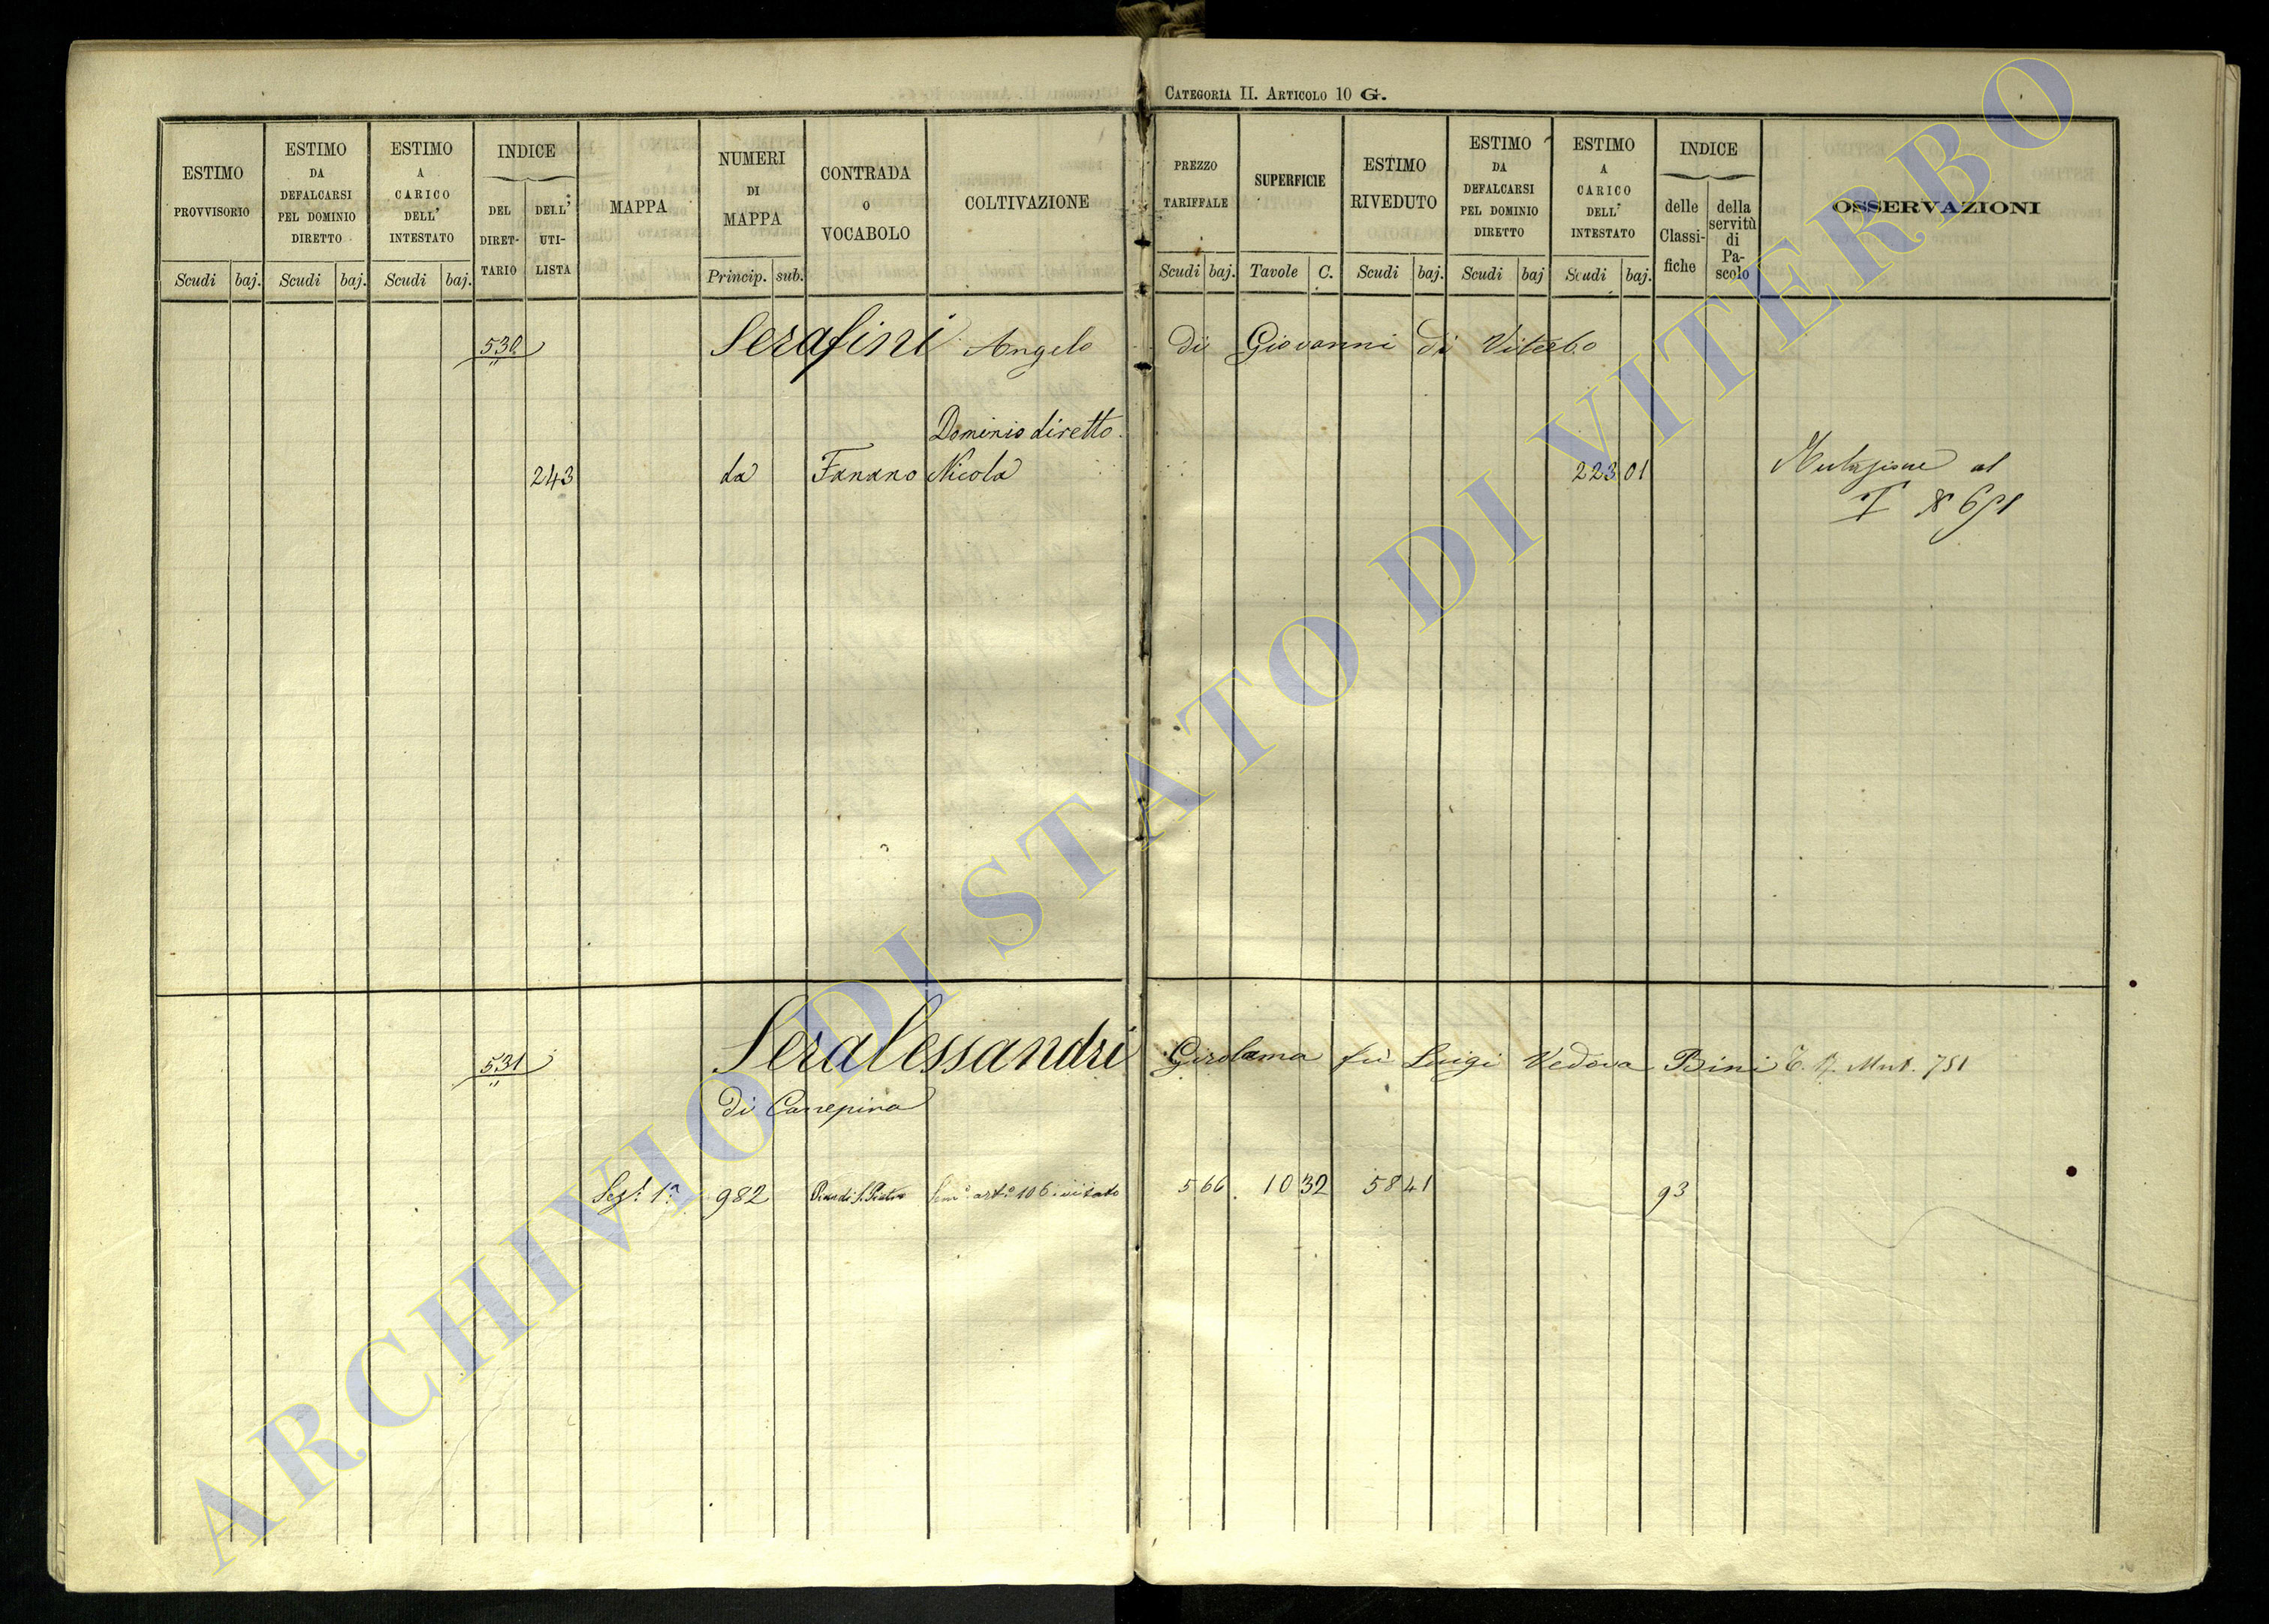 CATEGORIA II. ARTICOLO 10 G.
ESTIMO PROVVISORIO
Scudi baj.
ESTIMO DA DEFALCARSI PEL DOMINIO DIRETTO
Scudi baj.
ESTIMO A CARICO DELL' INTESTATO
Scudi baj.
INDICE
DEL DIRETTARIO
DELL' UTILISTA
MAPPA
NUMERI DI MAPPA
Princip. sub.
CONTRADA O VOCABOLO
COLTIVAZIONE
PREZZO TARIFFALE
Scudi baj.
SUPERFICIE
Tavole C.
ESTIMO RIVEDUTO
Scudi baj.
ESTIMO DA DEFALCARSI PEL DOMINIO DIRETTO
Scudi baj
ESTIMO A CARICO DELL' INTESTATO
Scudi baj.
INDICE
delle Classifiche
della servitù di Pascolo
OSSERVAZIONI
530 Serafini Angelo di Giovanni di Viterbo
Dominio diretto.
243 da Fanano Nicola 223 01 Mutazione al
I N 691
531 Seralessandri Girolama fu Luigi Vedova Bini Mut. 751
di Canepina
Sez. 1a 982 art. 10 5 66 10 32 58 41 93
ARCHIVIO DI STATO DI VITERBO